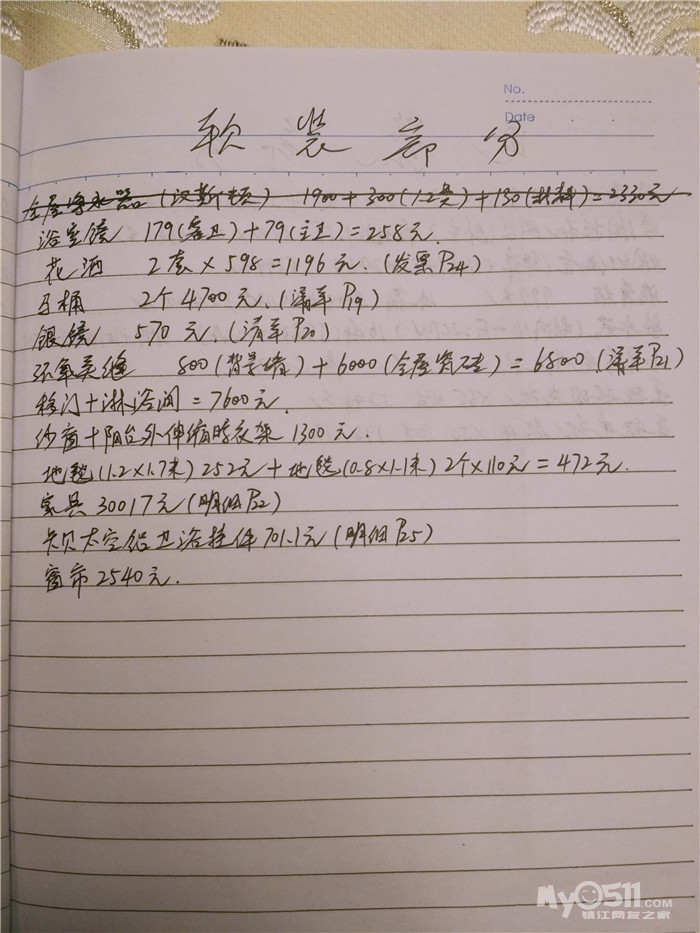 No.
Date
软装部分
全屋净水器(汉斯顿) 1900+300(1-2具)+130(材料)=2330元
浴室镜 179(客卫)+79(主卫)=258元.
花洒 2套×598=1196元.(发票P24)
马桶 2个4700元.(清单P19)
银镜 570元.(清单P20)
环氧美缝 800(背景墙)+6000(全屋瓷砖)=6800(清单P21)
移门+淋浴间=7600元.
纱窗+阳台外伸缩晾衣架1300元.
地毯(1.2×1.7米)252元+地毯(0.8×1.1米)2个×110元=472元.
家具30017元(明细P22)
卡贝太空铝卫浴挂件701.1元(明细P25)
窗帘2540元.
My0511.COM
镇江网友之家